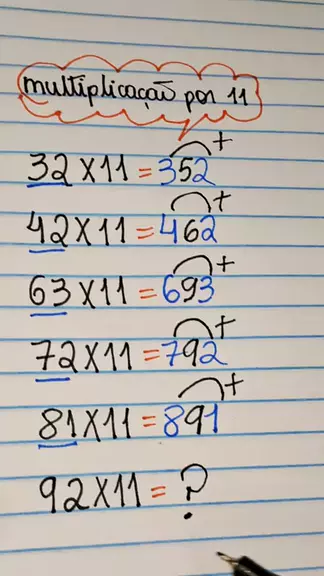 multiplicação por 11
+
32 X 11 = 352
+
42 X 11 = 462
+
63 X 11 = 693
+
72 X 11 = 792
+
81 X 11 = 891
92 X 11 = ?